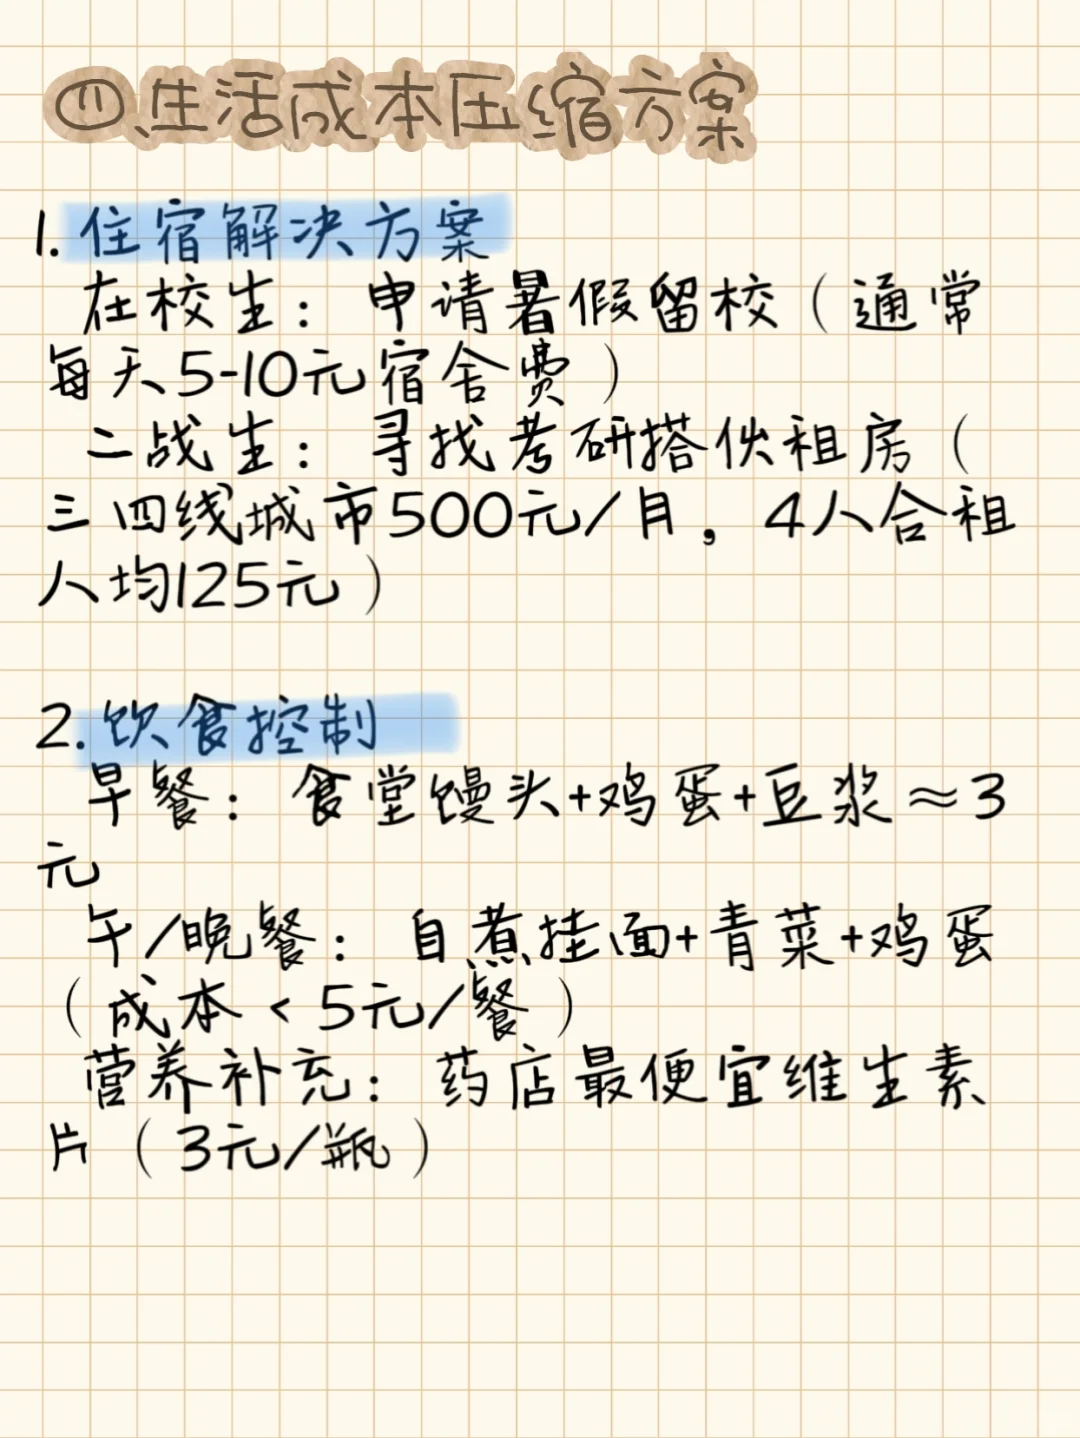 四、生活成本压缩方案
1. 住宿解决方案
在校生：申请暑假留校（通常
每天5-10元宿舍费）
二战生：寻找考研搭伙租房（
三四线城市500元/月，4人合租
人均125元）
2. 饮食控制
早餐：食堂馒头+鸡蛋+豆浆≈3
元
午/晚餐：自煮挂面+青菜+鸡蛋
（成本<5元/餐）
营养补充：药店最便宜维生素
片（3元/瓶）